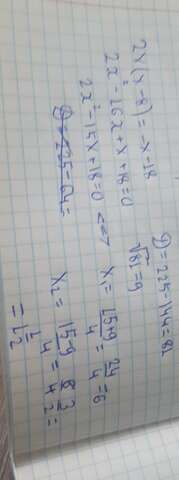 2x(x-8)=-x-18
2x²-16x+x+18=0
2x²-15x+18=0 <=>
D=225-144=81
√81=9
x₁=15+9/4=24/4=6
x₂=15-9/4=6/4=3/2=
=1 1/2